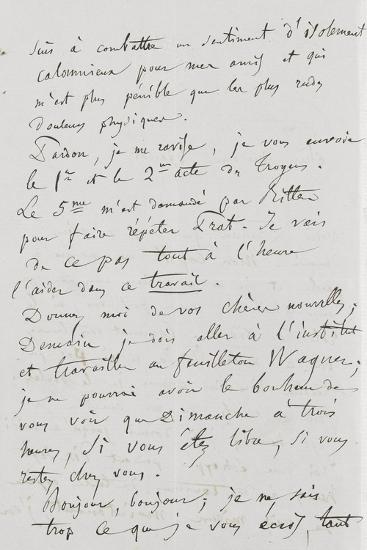 suis à combattre un sentiment d'isolement
calomnieux pour mes amis et qui
m'est plus pénible que les plus rudes
douleurs physiques.
Pardon, je me ravise, je vous envoie
le 1er et le 2me acte des Troyens.
Le 5me m'est demandé par Ritter
pour faire répéter Prat. Je vais
de ce pas tout à l'heure
l'aider dans ce travail.
Donnez moi de vos chères nouvelles;
Demain je dois aller à l'institut
et travailler au feuilleton Wagner;
je ne pourrai avoir le bonheur de
vous voir que Dimanche à trois
heures, si vous êtes libre, si vous
restez chez vous.
Bonjour, bonjour; je ne sais
trop ce que je vous écris, tant